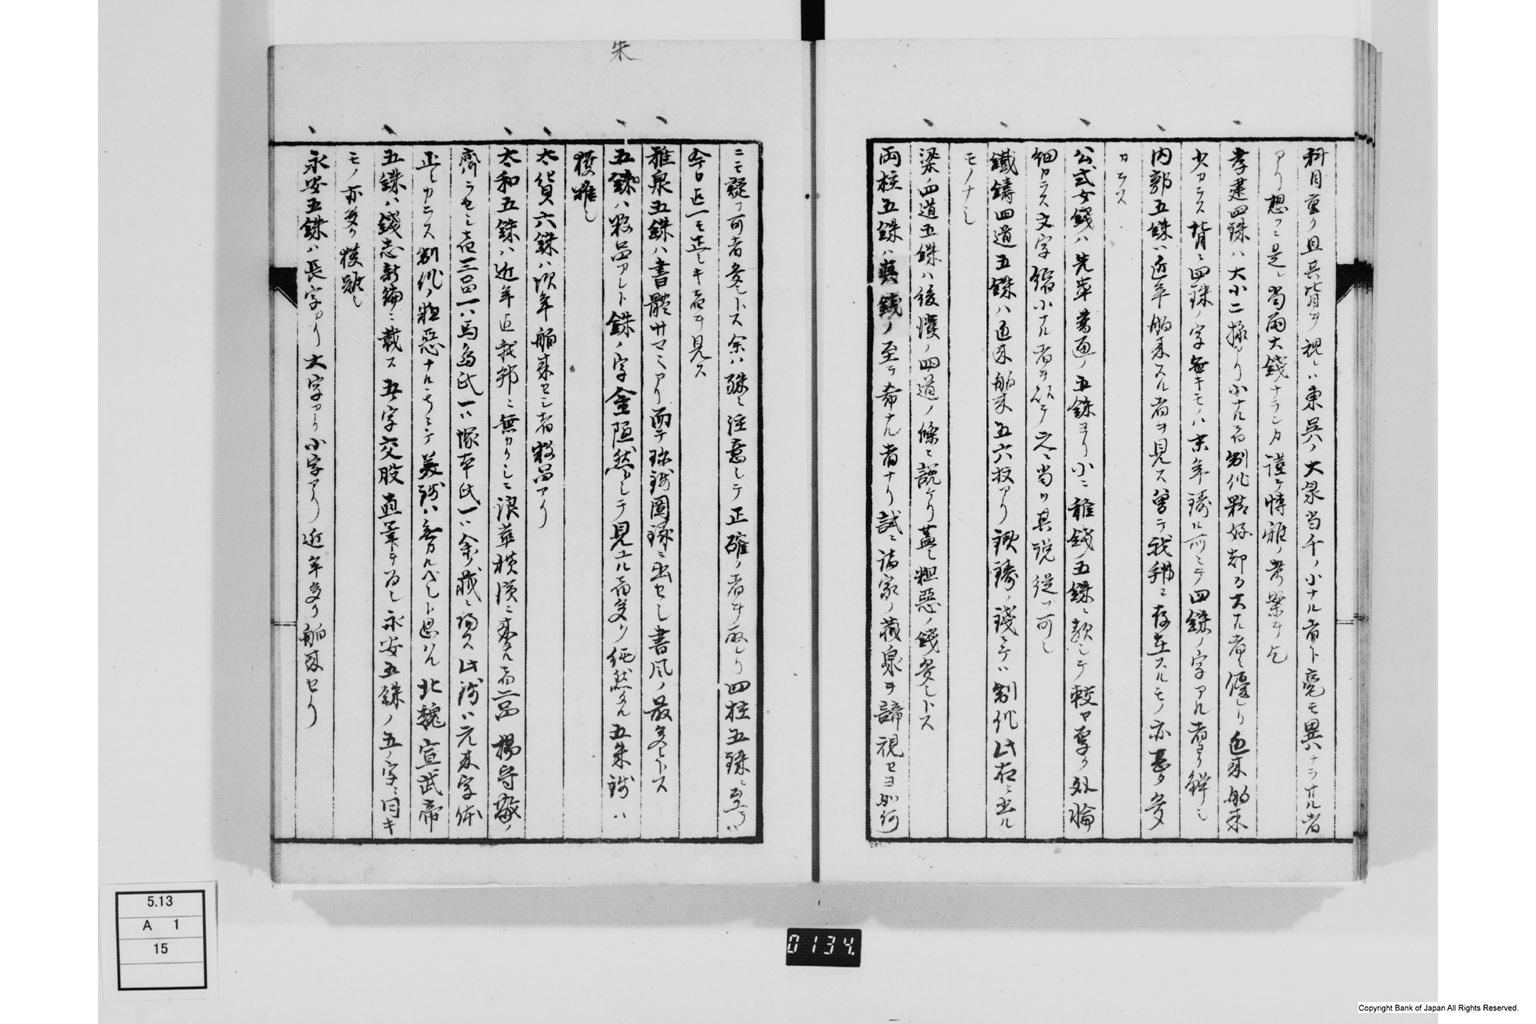 斜月重リ且其背ヲ視レハ東呉ノ大泉当千ノ小ナル者ト毫モ異ハナラサル者
アリ想フニ是レ当両大銭ナランカ謹テ博雅ノ考案ヲ乞
孝建四銖ハ大小二様アリ小ナル者制作最好却テ大ナル者ニ優レリ近来舶来
少カラス背ニ四銖ノ字無キモノハ末年鋳ル所ニテ四銖ノ字アル者ヨリ鮮シ
内郭五銖ハ近年舶来スル者ヲ見ス曽テ我邦ニ存在スルモノ亦甚タ多
カラス
公式女銭ハ先輩普通ノ五銖ヨリ小ニ稚銭五銖ニ類シテ較ヤ厚ク外輪
細カラス文字縮小ナル者ヲ以テ之ニ当ツ其説従フ可シ
鐵鋳四道五銖ハ近来舶来五六枚アリ鉄鋳ノ銭ニテハ制作此右ニ出ル
モノナシ
梁ノ四道五銖ハ後漢ノ四道ノ條ニ説ケリ蓋シ粗悪ノ銭多シトス
両柱五銖ハ真銭ノ至テ希ナル者ナリ試ニ諸家ノ蔵泉ヲ諦視セヨ如何
ニモ疑フ可者多シトス余ハ殊ニ注意シテ正確ノ者ヲ取レリ四柱五銖ニ至テハ
今日迄一モ正シキ者ヲ見ス
稚泉五銖ハ書體サマ〱アリ而テ珍銭圖録ニ出セシ書風ノ最多シトス
五銖ハ数品アレト銖ノ字金隠然トシテ見エル者多ク純然タル五朱銭ハ
獲難シ
太貨六銖ハ頃年舶来セシ者数品アリ
太和五銖ハ近年迄我邦ニ無カリシニ浪華横濱ニ來ル者二品楊守敬ノ
齎ラセシ者三品一ハ馬島氏一ハ塚本氏一ハ余ノ蔵ニ帰ス此銭ハ元来字体
正シカラス制作ノ粗悪ナルモノニテ美銭ハ無カルベシト思ハル北魏宣武帝
五銖ハ銭志新編ニ載ス五ノ字交股直筆ヲ為シ永安五銖ノ五ノ字ニ同キ
モノ亦多ク獲難シ
永安五銖ハ長字アリ大字アリ小字アリ近年多ク舶載セリ
朱
5.13
A 1
15
0134.
Copyright Bank of Japan All Rights Reserved.